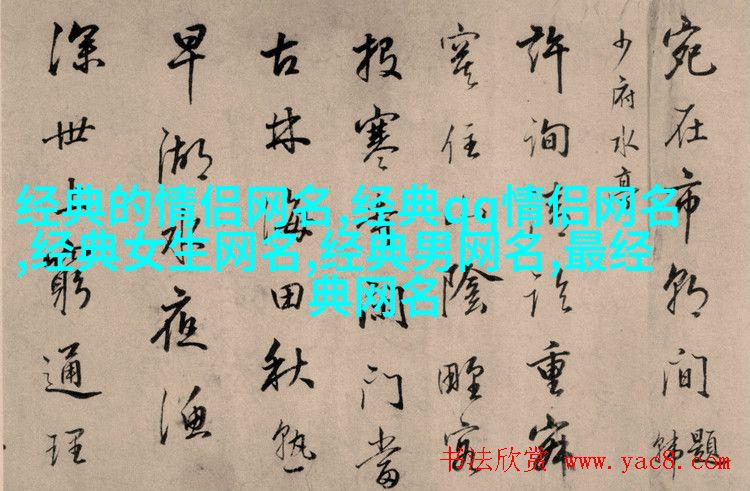 宛在市朝間
題韓
少府水亭
許詢
住山陰
報寒門當
古林海田秋熟
早湖水夜漁
深世上窮通理
经典的情侣网名,经典qq情侣网名
,经典女生网名,经典男网名,最经
典网名
书法欣赏 www.yac8.com